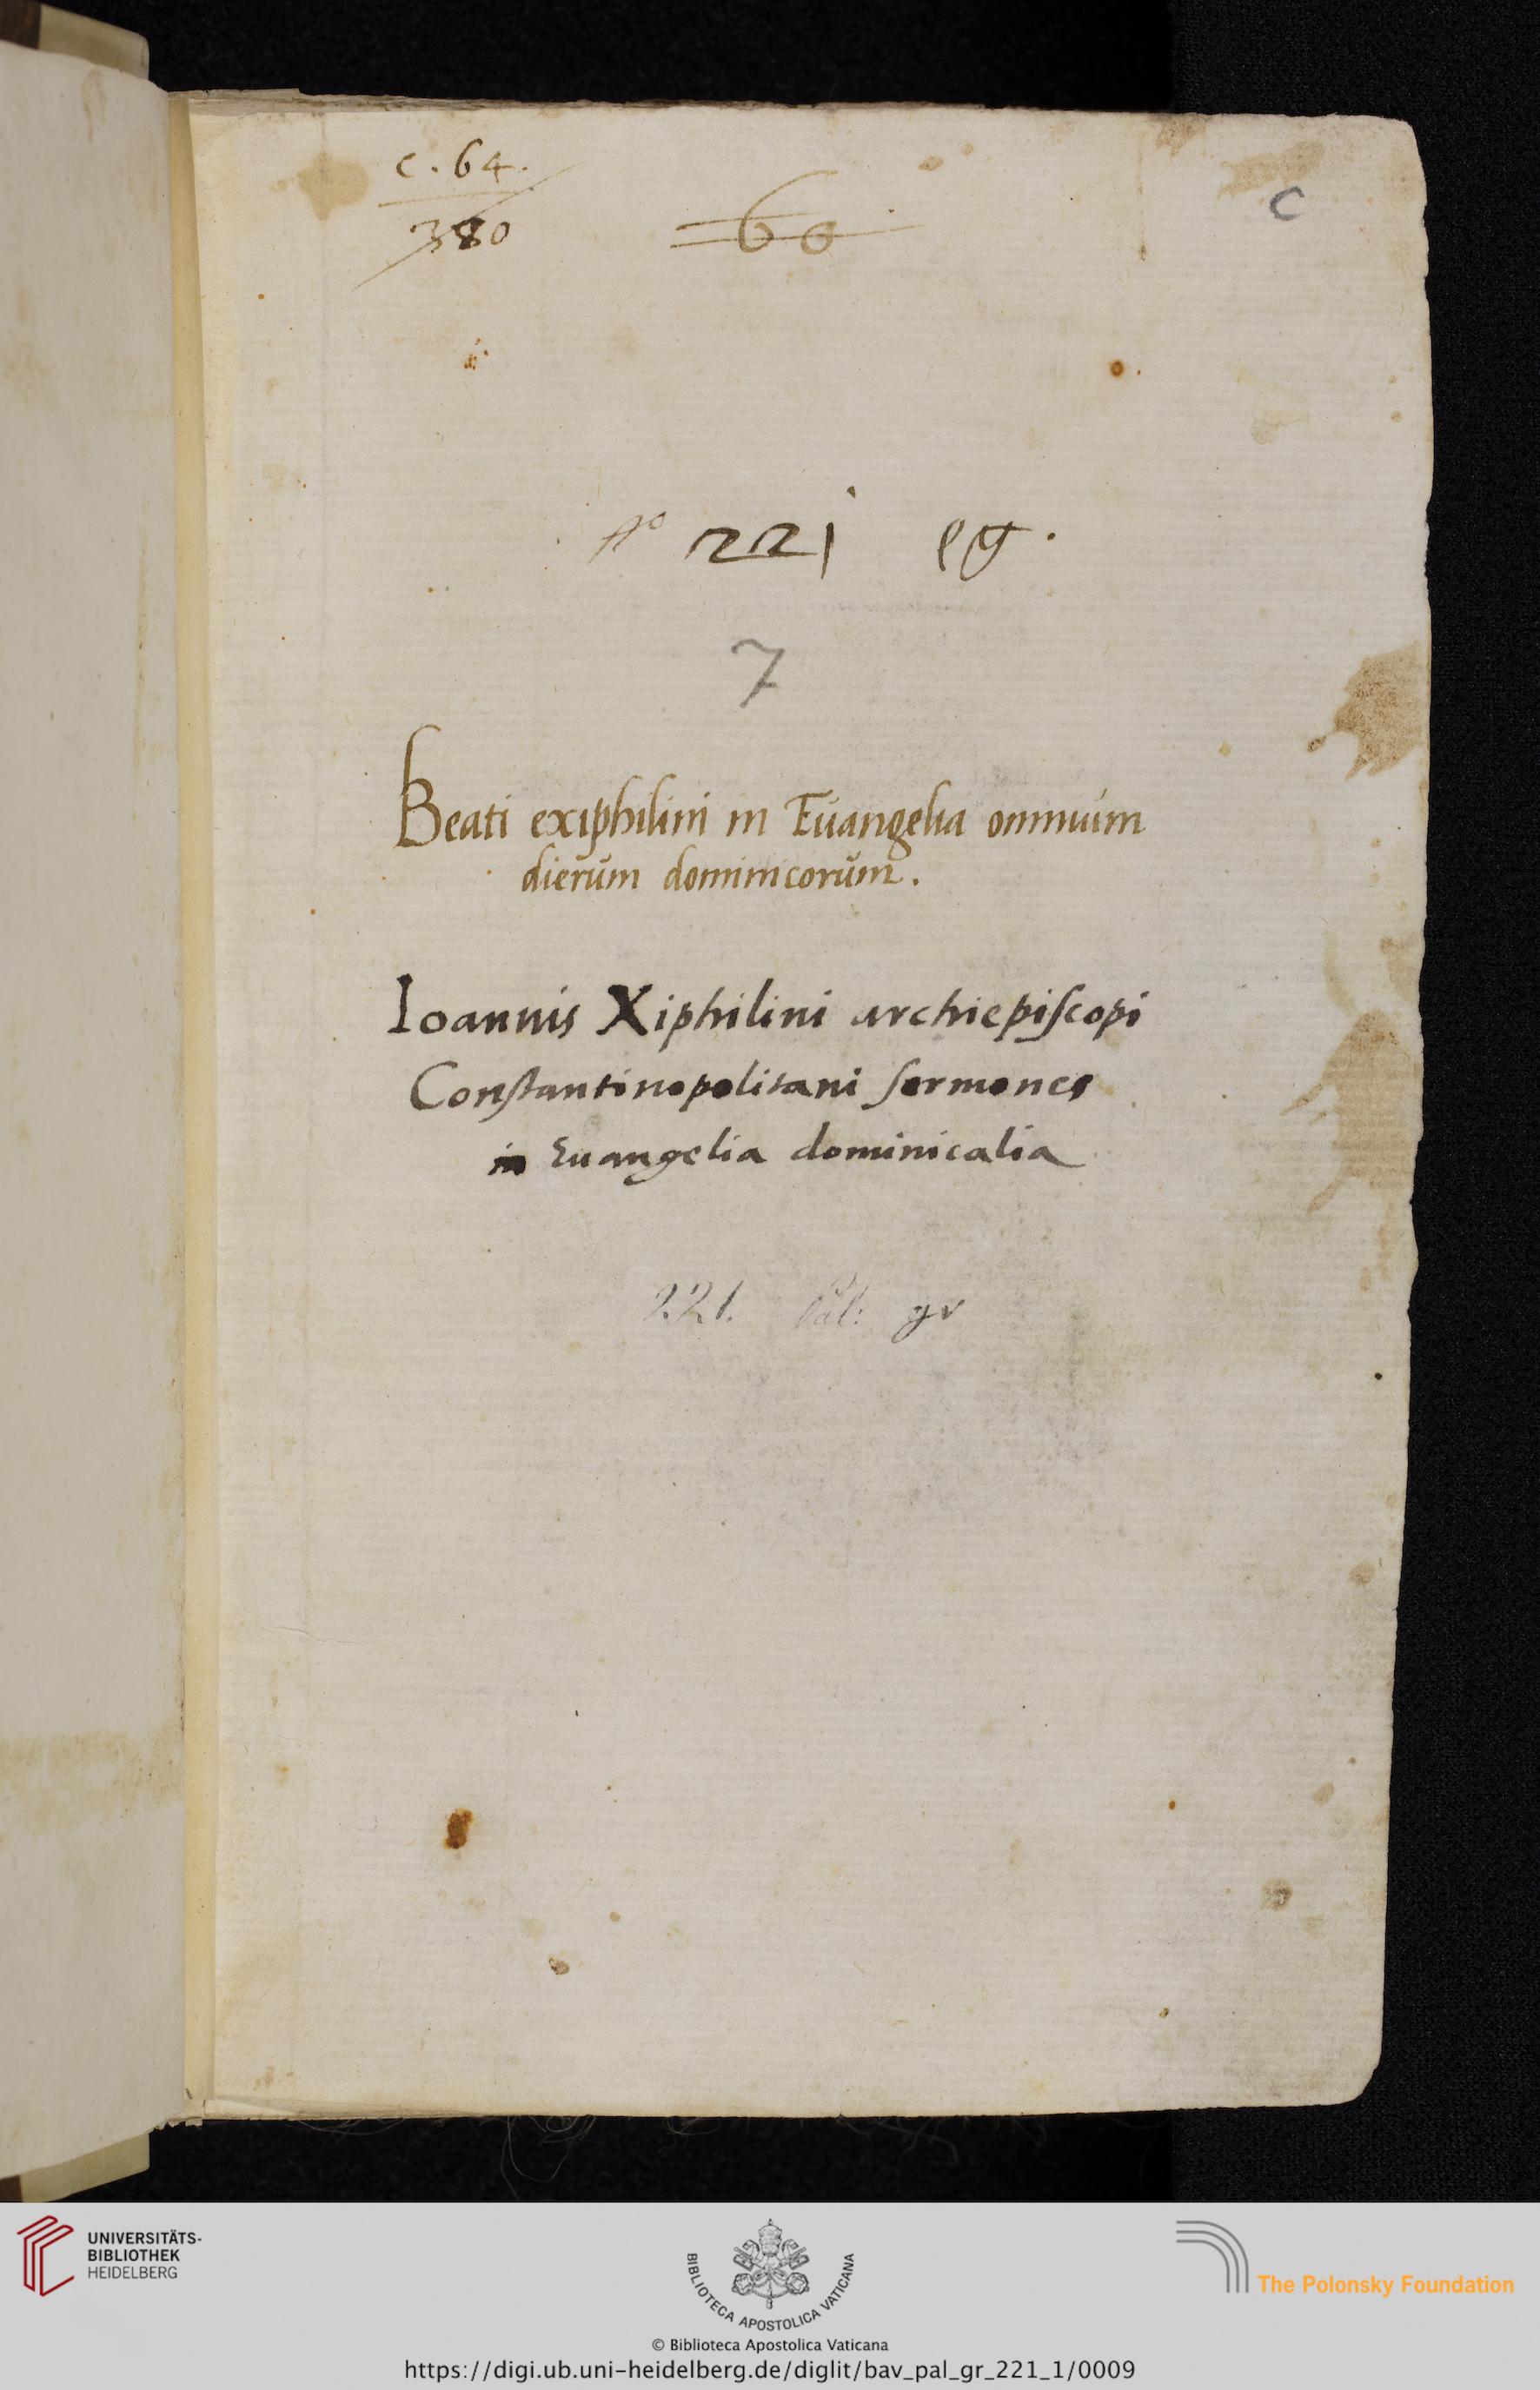 c. 64.
380
60
C
n° 221 pg.
7
Beati exiphilini in Euangelia omnium
dierum dominicorum.
Ioannis Xiphilini archiepiſcopi
Conſtantinopolitani ſermones
in Euangelia dominicalia
221. Pal: gr
UNIVERSITÄTS-
BIBLIOTHEK
HEIDELBERG
BIBLIOTECA APOSTOLICA VATICANA
The Polonsky Foundation
© Biblioteca Apostolica Vaticana
https://digi.ub.uni-heidelberg.de/diglit/bav_pal_gr_221_1/0009